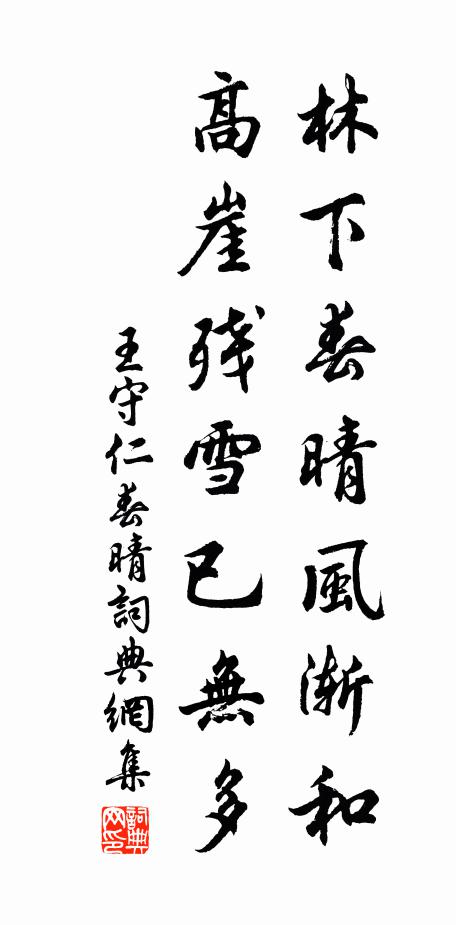 林下春晴風漸和
高崖残雪已無多
王守仁春晴詞典網集
詞典网印